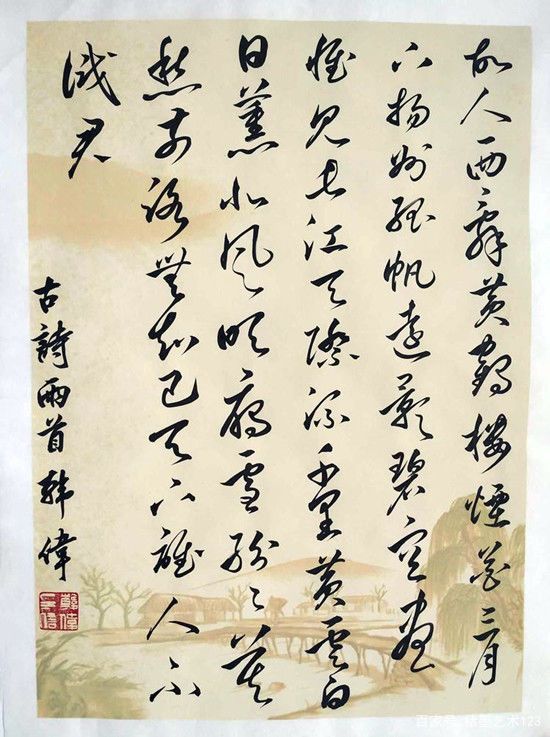 故人西辭黄鶴樓煙花三月
下揚州孤帆遠影碧空盡
惟見長江天際流千里黄雲白
日薰北風吹雁雪紛々莫
愁前路無知己天下誰人不
識君
古詩兩首韩偉
百家号 艺术123